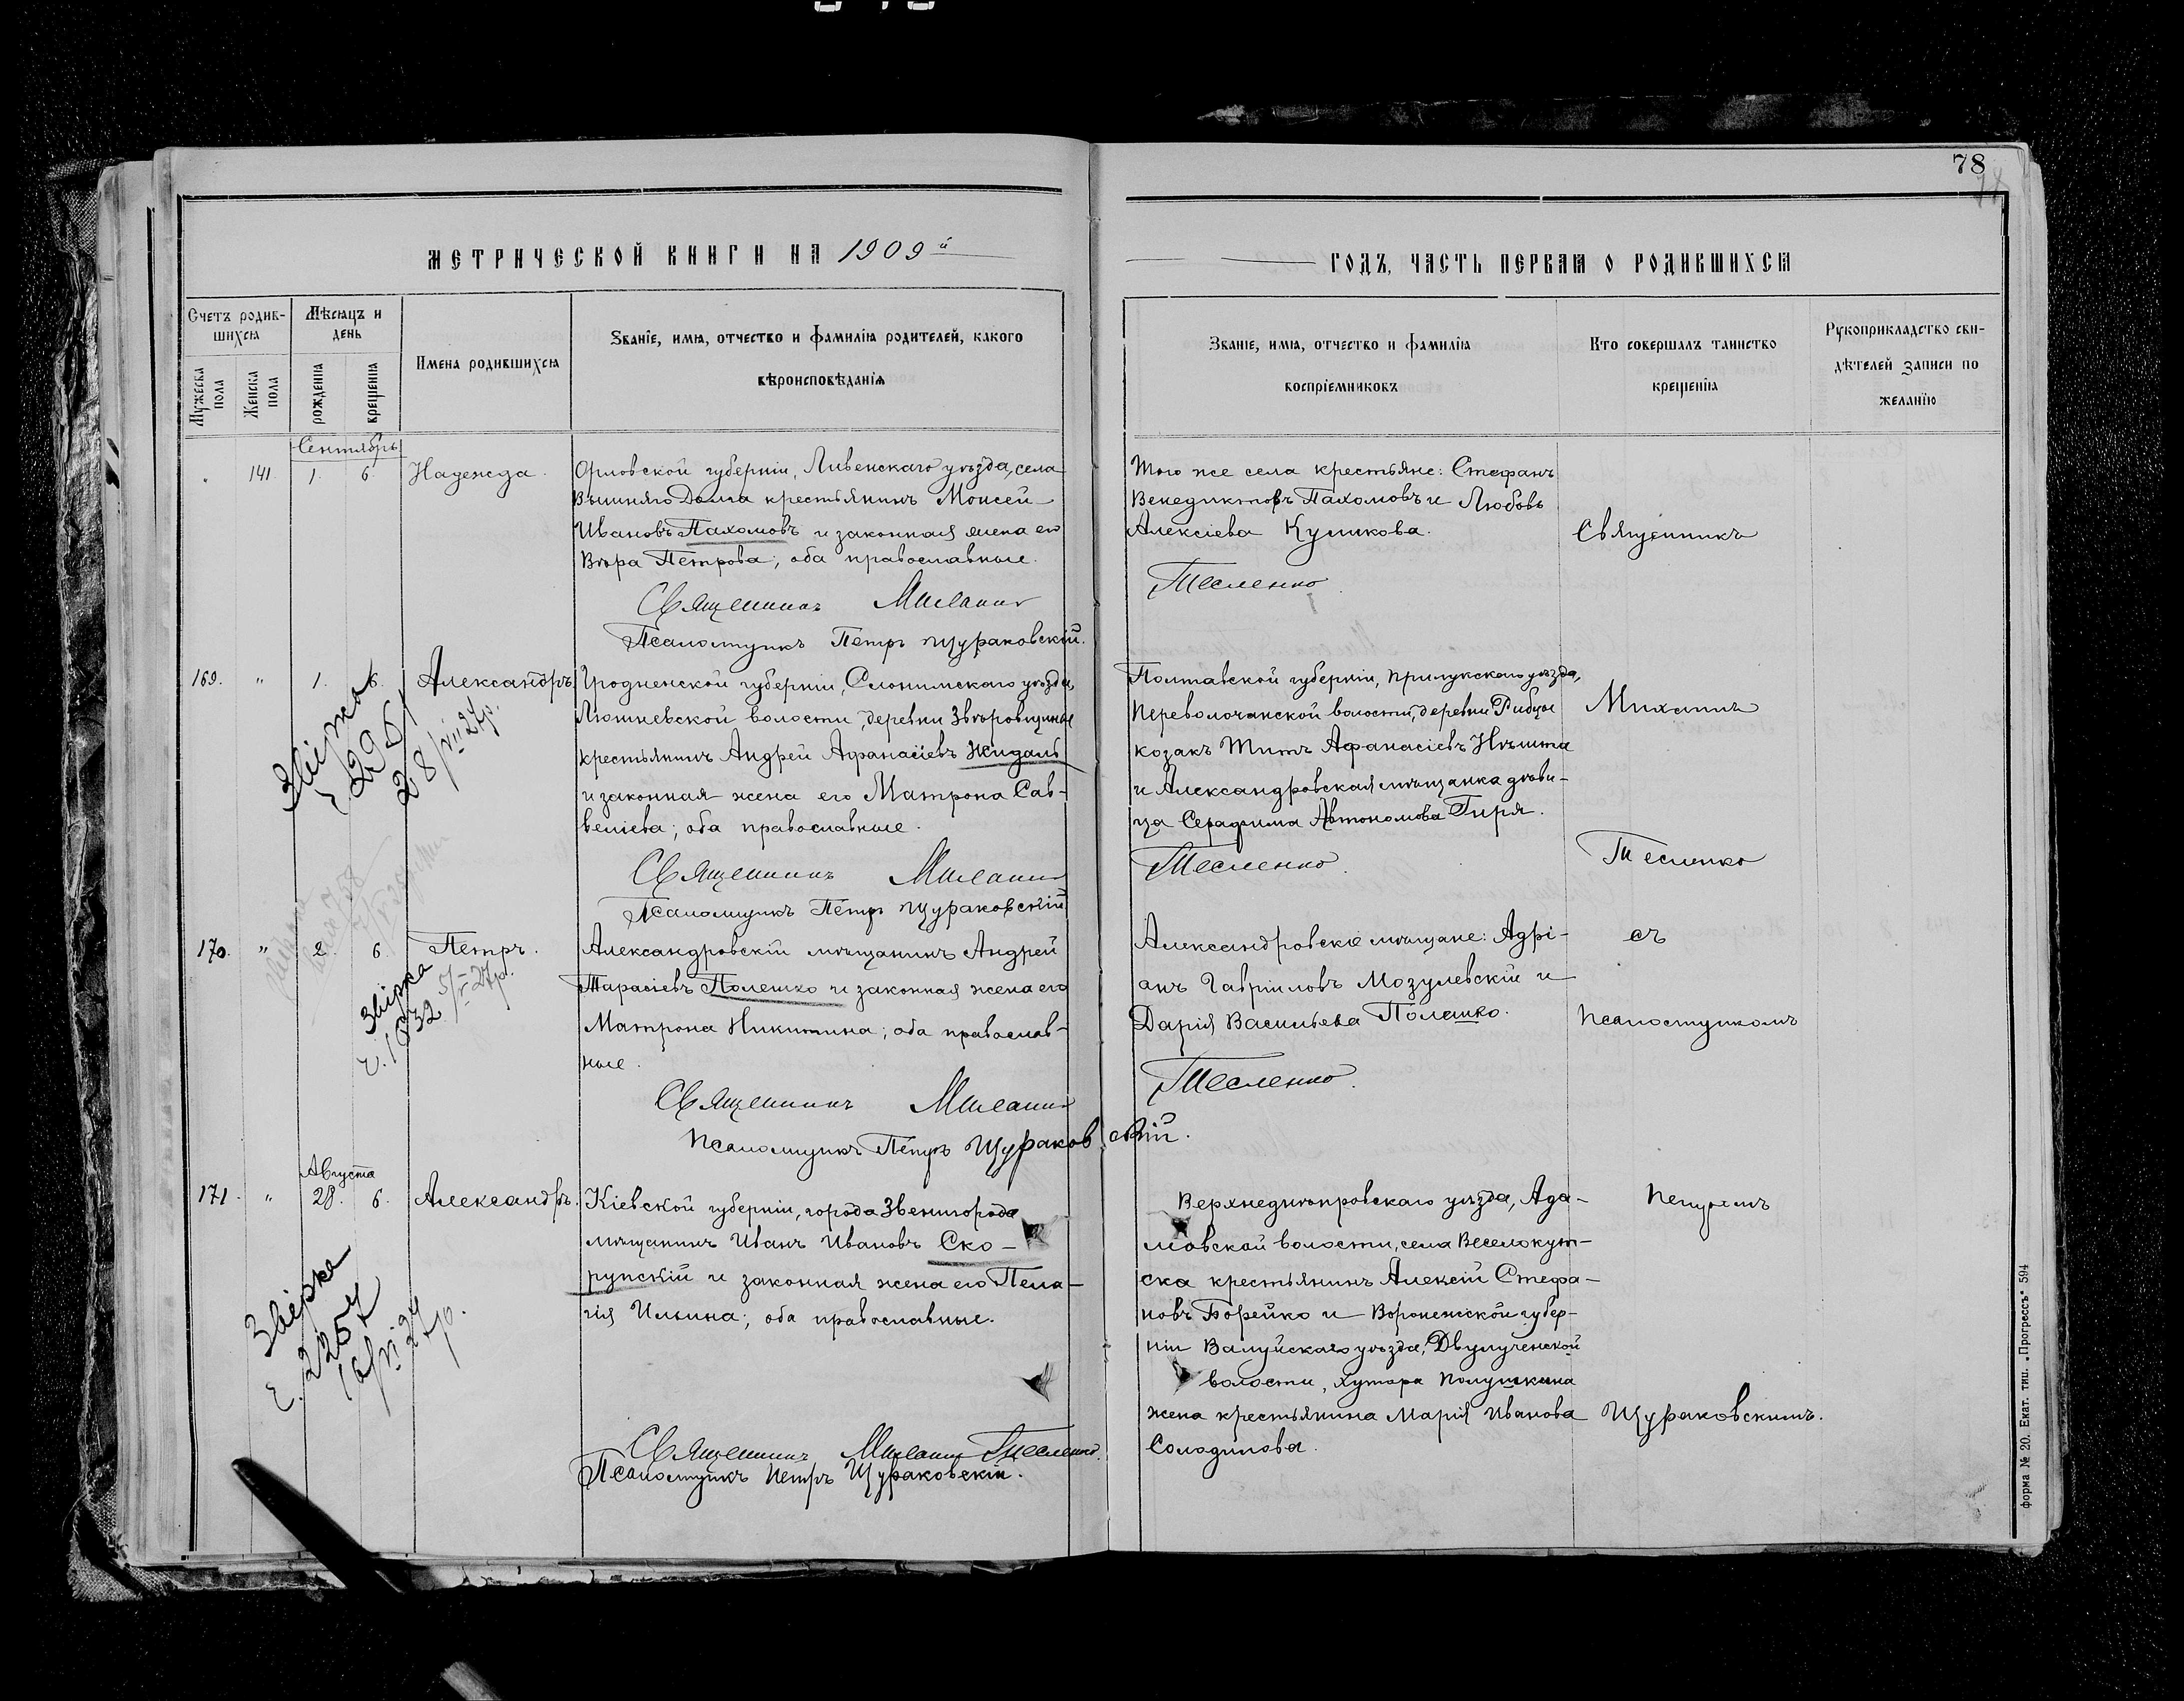 78
МЕТРИЧЕСКОЙ КНИГИ НА 1909й
ГОДЪ, ЧАСТЬ ПЕРВАЯ О РОДИВШИХСЯ
Счетъ родив-
шихся
Мужеска
пола
Женска
пола
Мѣсяцъ и
день
рожденія
крещенія
Имена родившихся
Званіе, имя, отчество и фамилія родителей, какого
вѣроисповѣданія
Званіе, имя, отчество и фамилія
воспріемниковъ
Кто совершалъ таинство
крещенія
Рукоприкладство сви-
дѣтелей записи по
желанію
Сентябрь
" 141 1. 6. Надежда.
Орловской губерніи, Ливенскаго уѣзда, села
Вышняго Долга крестьянинъ Моисей
Ивановъ Пахомовъ и законная жена его
Вѣра Петрова; оба православные.
Священникъ Михаилъ
Псаломщикъ Петръ Щураковскій.
Того же села крестьяне: Стефанъ
Венедиктовъ Пахомовъ и Любовь
Алексіева Куликова.
Тесленко
Священникъ
169. " 1. 6. Александръ
Звірка
2951
28/VIII 27р.
Гродненской губерніи, Слонимскаго уѣзда,
волости, деревни Звѣровщины
крестьянинъ Андрей Афанасіевъ Жидаль
и законная жена его Матрона Сав-
веліева; оба православные.
Священникъ Михаилъ
Псаломщикъ Петръ Щураковскій
Полтавской губерніи, Прилукскаго уѣзда,
Переволочанской волости, деревни Рибцы
козакъ Титъ Афанасіевъ
и Александровская мѣщанка дѣви-
ца Серафима Автономова Гиря.
Тесленко.
Михаилъ
Тесленко
170. " 2. 6. Петръ.
Звірка
1032 5/V 27р.
Александровскій мѣщанинъ Андрей
Тарасіевъ Полешко и законная жена его
Матрона Никитина; оба православ-
ные.
Священникъ Михаилъ
Псаломщикъ Петръ Щураковскій.
Александровскіе мѣщане: Адрі-
анъ Гавріиловъ Мозулевскій и
Дарія Васильева Полешко.
Тесленко.
съ
Псаломщикомъ
Августа
171. " 28. 6. Александръ.
Звірка
16/VI 27р.
Кіевской губерніи, города Звенигорода
мѣщанинъ Иванъ Ивановъ Ско-
рупскій и законная жена его Пела-
гія Ильина; оба православные.
Священникъ Михаилъ Тесленко.
Псаломщикъ Петръ Щураковскій.
Верхнеднѣпровскаго уѣзда, Ада-
мовской волости, села Веселокут-
ска крестьянинъ Алексій Стефа-
новъ Борейко и Воронежской губер-
ніи Валуйскаго уѣзда, Двулученской
волости, хутора
жена крестьянина Марія Иванова
Солодилова.
Петромъ
Щураковскимъ.
Форма № 20. Екат. тип. „Прогрессъ" 594